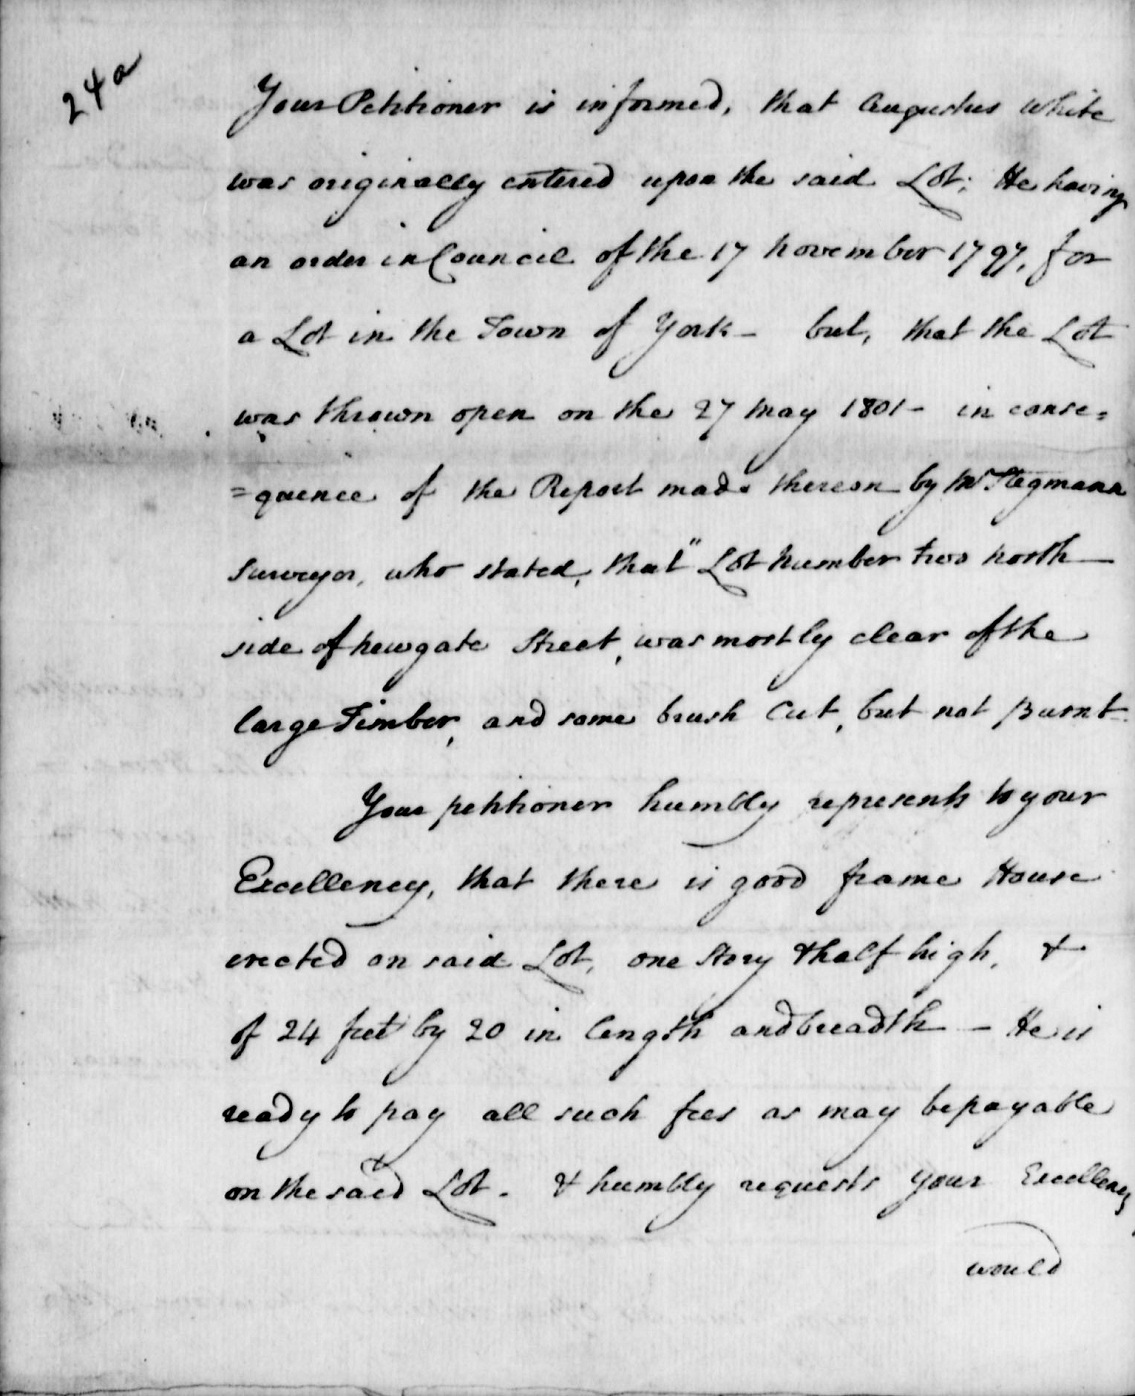 24a
Your Petitioner is informed, that Augustus White
was originally entered upon the said Lot; He having
an order in Council of the 17 November 1797, for
a Lot in the Town of York – but, that the Lot
was thrown open on the 27 May 1801 – in conse=
=quence of the Report made thereon by Mr Stegmann
Surveyor, who stated, that "Lot Number two North
side of Newgate Street, was mostly clear of the
large Timber, and some brush Cut, but not Burnt
Your petitioner humbly represents to your
Excellency, that there is good frame House
erected on said Lot, one Story & half high, &
of 24 feet by 20 in length and breadth – He is
ready to pay all such fees as may be payable
on the said Lot. & humbly requests your Excellency
would